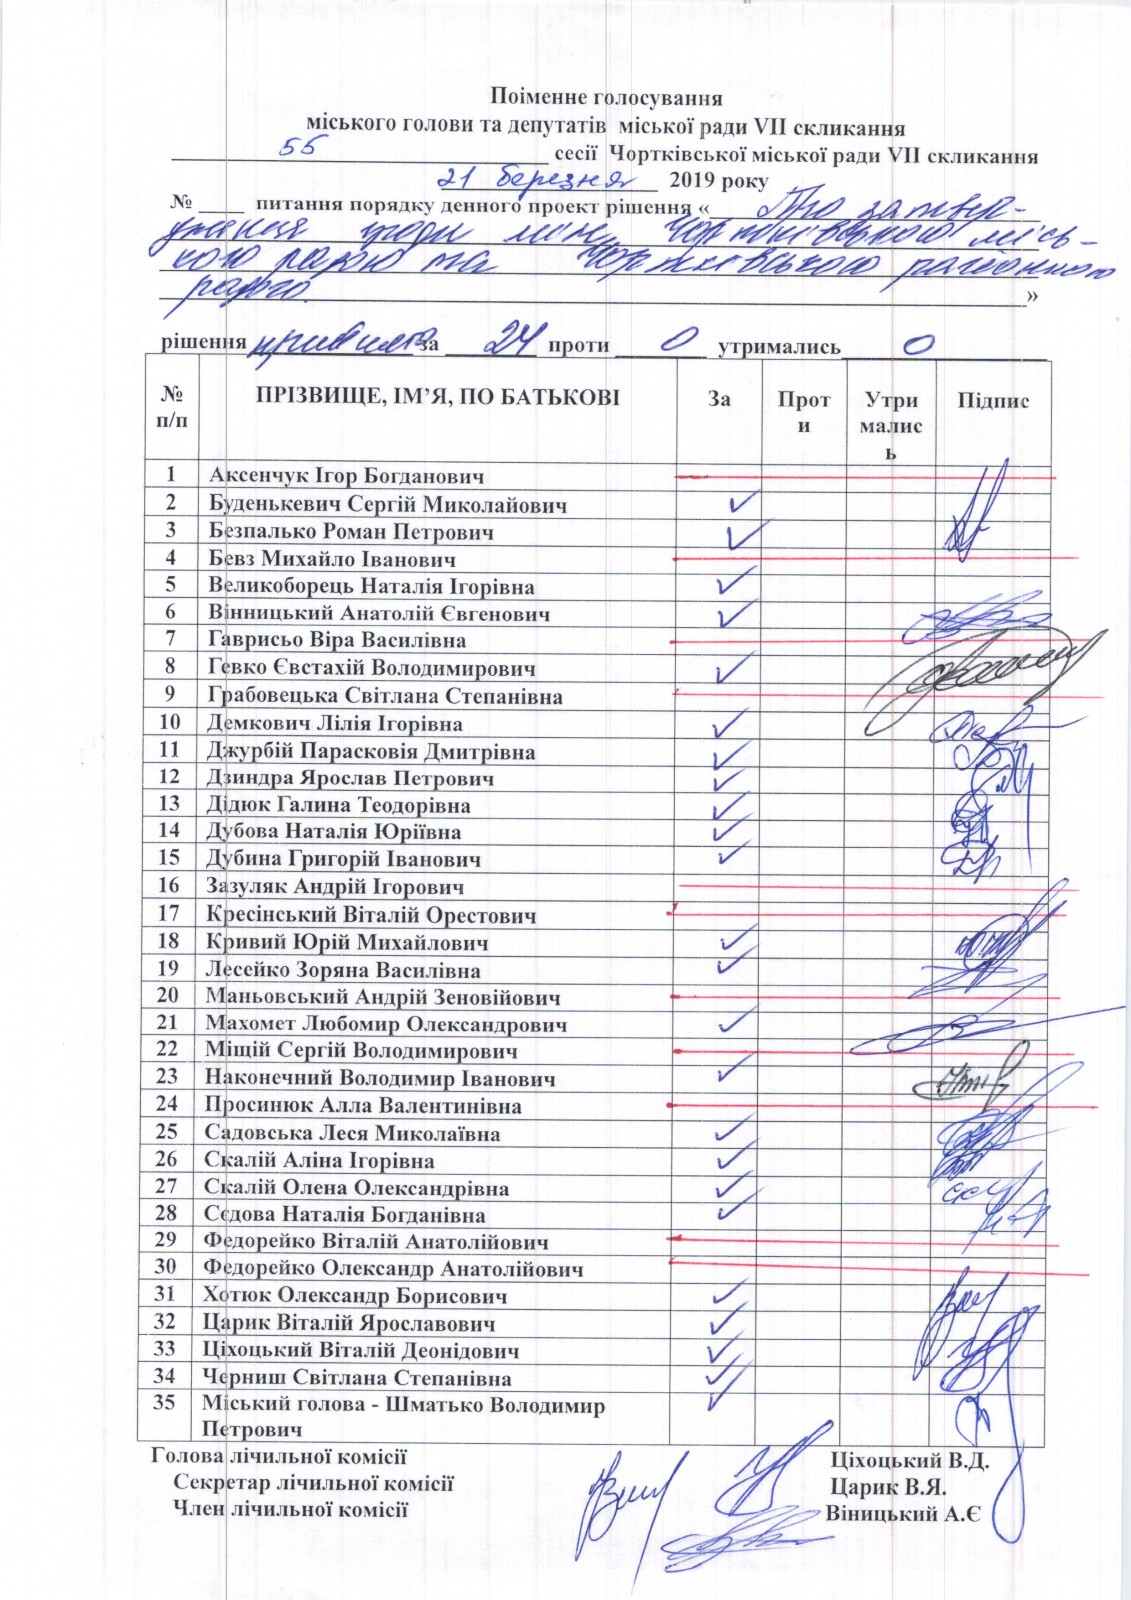 Поіменне голосування
міського голови та депутатів міської ради VII скликання
55 сесії Чортківської міської ради VII скликання
21 березня 2019 року
№ ____ питання порядку денного проект рішення « Про затвер-
дження угоди між Чортківською місь-
кою радою та Чортківською районною
радою »
рішення прийнято за 24 проти 0 утримались 0
№ п/п ПРІЗВИЩЕ, ІМ’Я, ПО БАТЬКОВІ За Проти Утрималисъ Підпис
1 Аксенчук Ігор Богданович
2 Буденькевич Сергій Миколайович ✓
3 Безпалько Роман Петрович ✓
4 Бевз Михайло Іванович
5 Великоборець Наталія Ігорівна ✓
6 Вінницький Анатолій Євгенович ✓
7 Гаврисьо Віра Василівна
8 Гевко Євстахій Володимирович ✓
9 Грабовецька Світлана Степанівна
10 Демкович Лілія Ігорівна ✓
11 Джурбій Парасковія Дмитрівна ✓
12 Дзиндра Ярослав Петрович ✓
13 Дідюк Галина Теодорівна ✓
14 Дубова Наталія Юріївна ✓
15 Дубина Григорій Іванович ✓
16 Зазуляк Андрій Ігорович
17 Кресінський Віталій Орестович
18 Кривий Юрій Михайлович ✓
19 Лесейко Зоряна Василівна ✓
20 Маньовський Андрій Зеновійович
21 Махомет Любомир Олександрович ✓
22 Міщій Сергій Володимирович
23 Наконечний Володимир Іванович ✓
24 Просинюк Алла Валентинівна
25 Садовська Леся Миколаївна ✓
26 Скалій Аліна Ігорівна ✓
27 Скалій Олена Олександрівна ✓
28 Сєдова Наталія Богданівна ✓
29 Федорейко Віталій Анатолійович
30 Федорейко Олександр Анатолійович
31 Хотюк Олександр Борисович ✓
32 Царик Віталій Ярославович ✓
33 Ціхоцький Віталій Деонідович ✓
34 Черниш Світлана Степанівна ✓
35 Міський голова - Шматько Володимир ✓
Петрович
Голова лічильної комісії Ціхоцький В.Д.
Секретар лічильної комісії Царик В.Я.
Член лічильної комісії Віницький А.Є